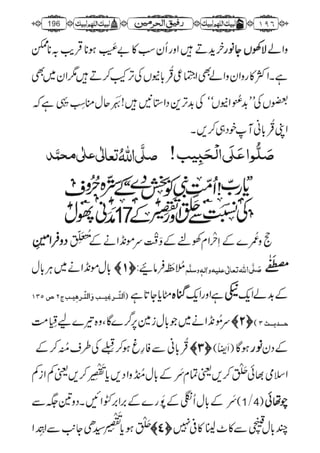 196 لبیک اللھم لبیک رفیق الحرمین لبیک اللھم لبیک ۱۹۶
والے لاکھوں جانور خریدتے ہیں اور اُن سب کا بے عیب ہونا قریب بہ ناممکن
ہے۔ اکثر کارواں والے بھی اجتماعی قُربانیوں کی ترکیب کرتے ہیں مگر ان میں بھی
بعضوں کی ”خُوردبُرد“ کی بدترین داستانیں ہیں! بہرحال مناسِب یہی ہے کہ
اپنی قُربانی آپ خود ہی کریں۔
صَلُّوا عَلَی الْحَبِیب ! صلَّی اللہُ تعالٰی علٰی محمَّد
حج وعمرے کے اِحرام کھولنے کے وَقت سرمنڈوانے کے مُتَعَلِّق دو فرامینِ
مصطفٰے صلَّی اللہ تعالٰی علیہ واٰلہٖ وسلَّم مُلاحَظہ فرمائیے: ﴿۱﴾ بال مونڈانے میں ہر بال
کے بدلے ایک نیکی ہے اور ایک گناہ مٹایا جاتا ہے (الترغیب والترھیب ج۲ ص ۱۳۵
حدیث ۳) ﴿۲﴾ سرمُنڈوانے میں جو بال زمین پر گرے گا، وہ تیرے لیے قِیامت
کے دن نور ہوگا (ایضاً) ﴿۳﴾ قُربانی سے فارِغ ہوکر قبلے کی طرف مُنہ کر کے
اسلامی بھائی حَلْق کریں یعنی تمام سَر کے بال مُنڈوا دیں یا تَقْصِیر کریں یعنی کم از کم
چوتھائی (1/4) سَر کے بال اُنگلی کے پَورے کے برابر کٹوائیں۔ دو تین جگہ سے
چند بال قینچی سے کاٹ لینا کافی نہیں ﴿۴﴾ حَلْق ہو یا تَقْصِیر سیدھی جانب سے ابتِدا